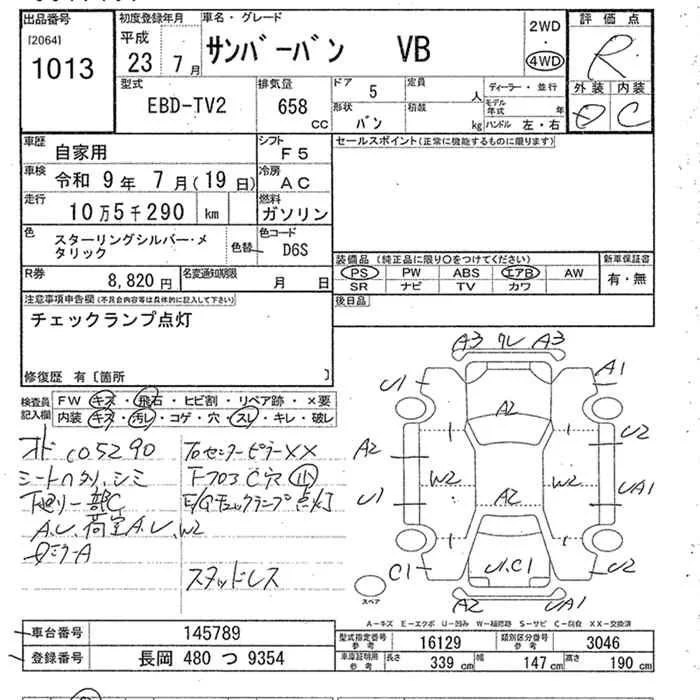 出品番号 初度登録年月 車名・グレード 評価点
[2064] 平成 サンバーバン VB 2WD
1013 23年 7月 4WD R
型式 排気量 ドア 5 定員 人 ディーラー・並行 外装 内装
EBD-TV2 658 cc 形状 バン 積載 kg モデル年式 年 ハンドル 左・右 D C
車歴 自家用 シフト F5 セールスポイント(正常に機能するものに限ります)
車検 令和 9年 7月(19日) 冷房 AC
走行 10万5千290 km 燃料 ガソリン
色 スターリングシルバー・メタリック 色替 色コード D6S
装備品(純正品に限り○をつけてください) 新車保証書
R券 8,820円 名変通知期限 月 日 PS PW ABS エアB AW 有・無
SR ナビ TV カワ
注意事項申告欄(不具合内容等は具体的に記入して下さい) 後日品
チェックランプ点灯
修復歴 有〔箇所 〕
検査員記入欄 FW キズ・飛石・ヒビ割・リペア跡・×要
内装 キズ・汚レ・コゲ・穴・スレ・キレ・破レ
オド105290 プロセンターピラーXX
シートヘタリ、シミ
下廻リ一部C E/Gチェックランプ点灯
A.U、荷室A.U、W2
スタッドレス
A3 ワレ A3
U1 A1
A2
A2 U2
W2 W2
U1 A2 UA1
C1 U1.C1 U2
A2 UA1
スペア
A-キズ E-エクボ U-凹ミ W-補修跡 S-サビ C-腐食 XX-交換済
車台番号 145789 型式指定番号 参考 16129 類別区分番号 参考 3046
登録番号 長岡 480 つ 9354 車庫証明用 参考 長さ 339cm 幅 147cm 高さ 190cm